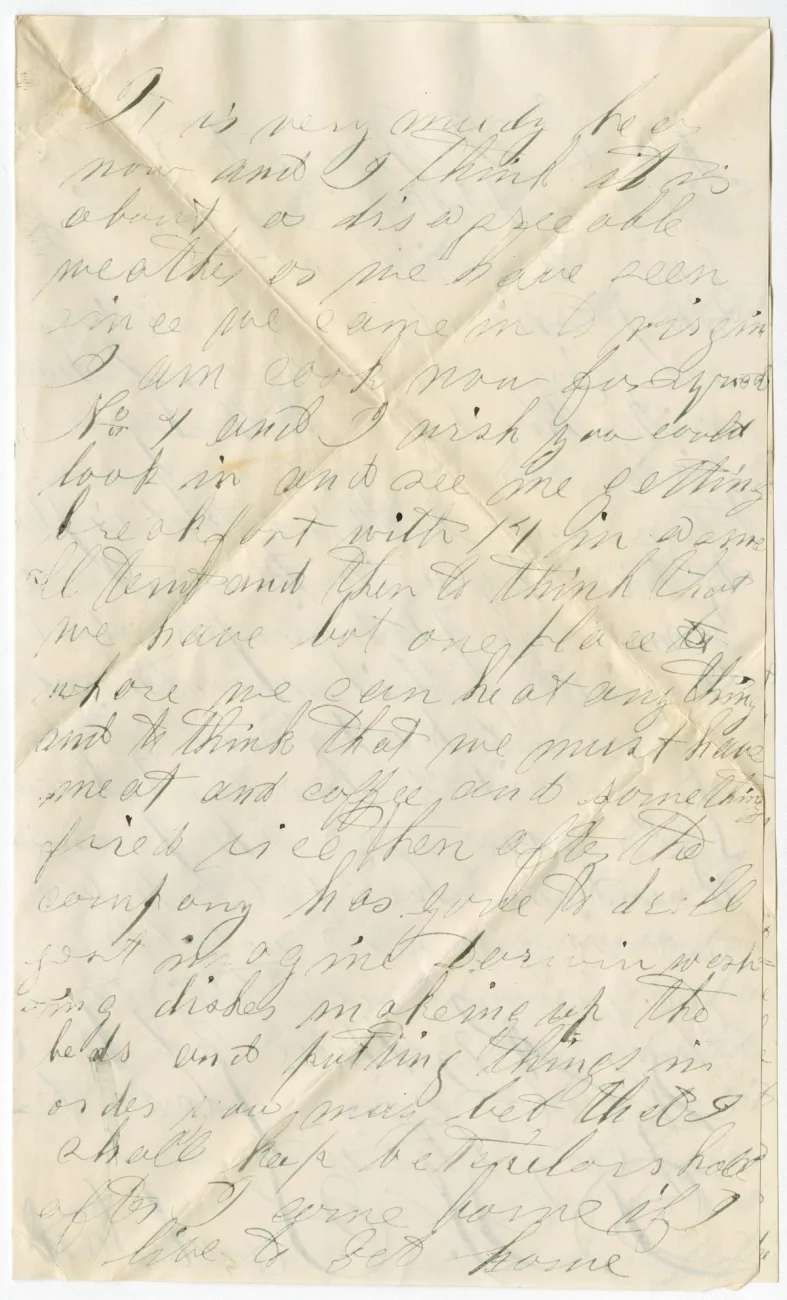 It is very mudy hear
now and I think it is
about as disagreeable
weather as we have seen
since we came in to virgin
I am cook now for squad
No 4 and I wish you could
look in and see me getting
breakfast with 14 in a sma
ll tent and then to think that
we have but one place to
whare we can heat any thing
and to think that we must have
meat and coffee and something
fried rice then after the
company has gone to drill
just imagine Darwin wash
ing dishes makeing up the
beds and putting things in
order you may bet that I
shall kep hall
after I come home if I
live to get home